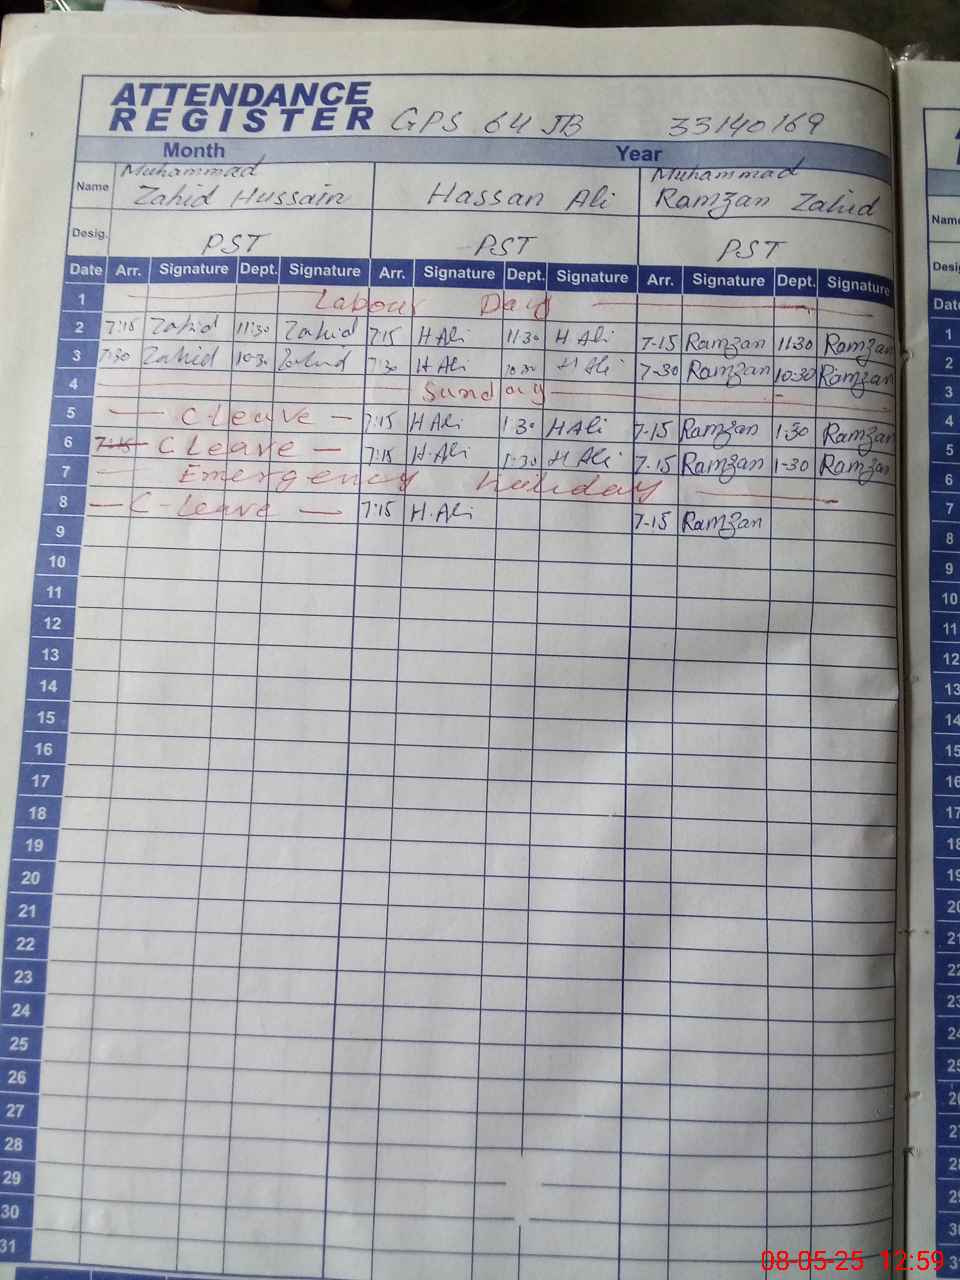 ATTENDANCE
REGISTER GPS 64 JB 33140169
Month Year
Name Muhammad Zahid Hussain Hassan Ali Muhammad Ramzan Zahid
Desig. PST PST PST
Date Arr. Signature Dept. Signature Arr. Signature Dept. Signature Arr. Signature Dept. Signature
1 Labour Day
2 7:15 Zahid 11:30 Zahid 7:15 H Ali 11:30 H Ali 7-15 Ramzan 11-30 Ramzan
3 7:30 Zahid 10:30 Zahid 7:30 H Ali 10:30 H Ali 7-30 Ramzan 10-30 Ramzan
4 Sunday
5 C Leave 7:15 H Ali 1:30 H Ali 7-15 Ramzan 1:30 Ramzan
6 7:15 C Leave 7:15 H.Ali 1:30 H Ali 7-15 Ramzan 1-30 Ramzan
7 Emergency Holiday
8 C-Leave 7:15 H.Ali 7-15 Ramzan
9
10
11
12
13
14
15
16
17
18
19
20
21
22
23
24
25
26
27
28
29
30
31
Name
Desig
Date
1
2
3
4
5
6
7
8
9
10
11
12
13
14
15
16
17
18
19
20
21
22
23
24
25
26
27
28
29
30
08-05-25 12:59